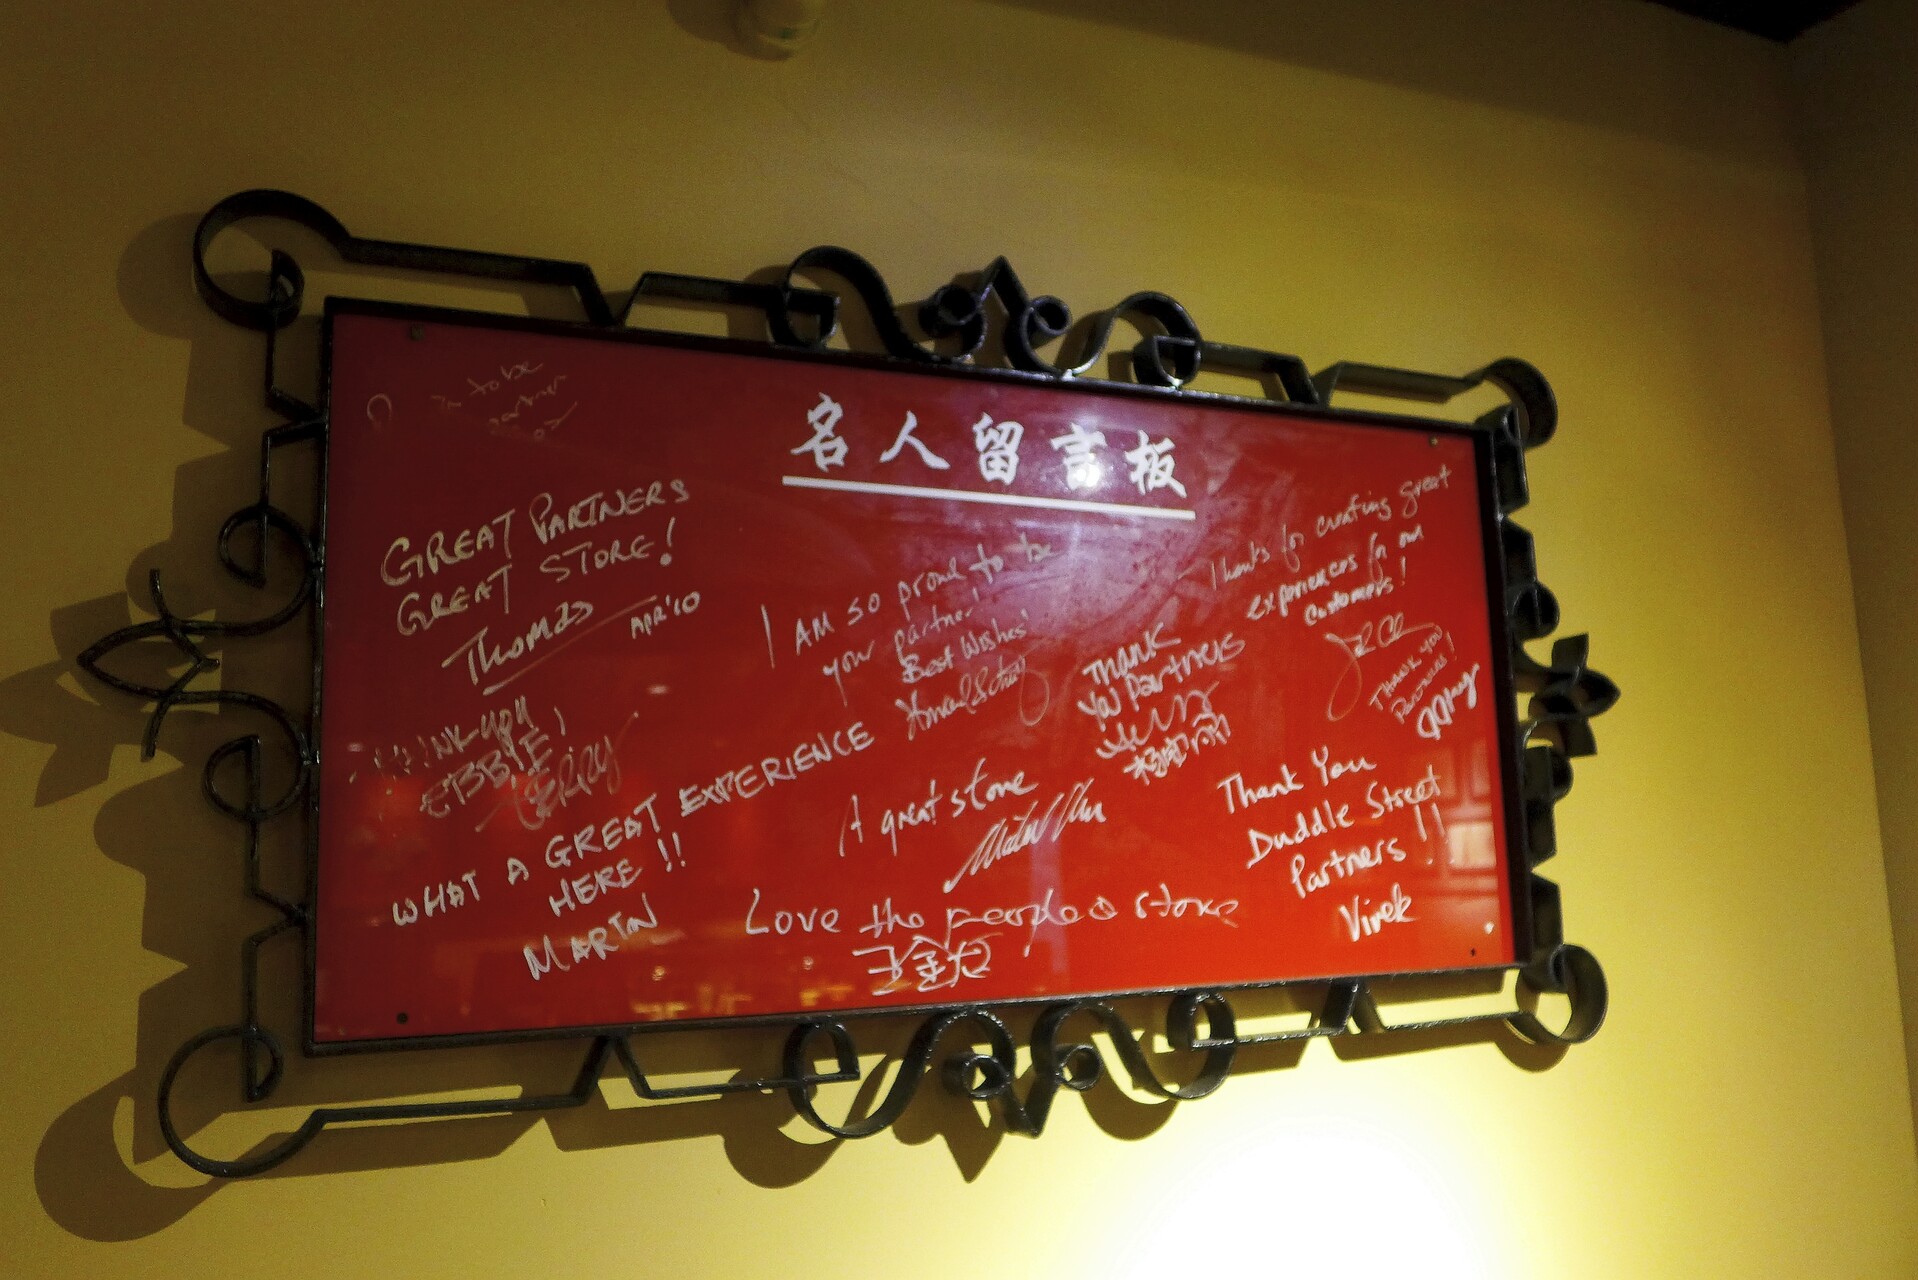 名人留言板
to be
partner
GREAT PARTNERS
GREAT STORE!
THOMAS
APR'10
I AM SO proud to be
your partner!
Best Wishes
Thanks for creating great
experiences for our
customers!
THANK
YOU PARTNERS
THANK YOU
PARTNERS!
THINK YOU
EBBIE,
TERRY
WHAT A GREAT EXPERIENCE
HERE !!
MARTIN
A great store
Thank You
Duddle Street
Partners !!
Vivek
Love the people's store